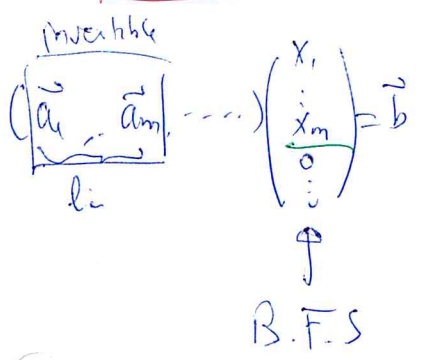 invertible
( a⃗₁ ... a⃗ₘ, .... ) ( x₁ ⋮ xₘ 0 ⋮ ) = b⃗
li
B.F.S